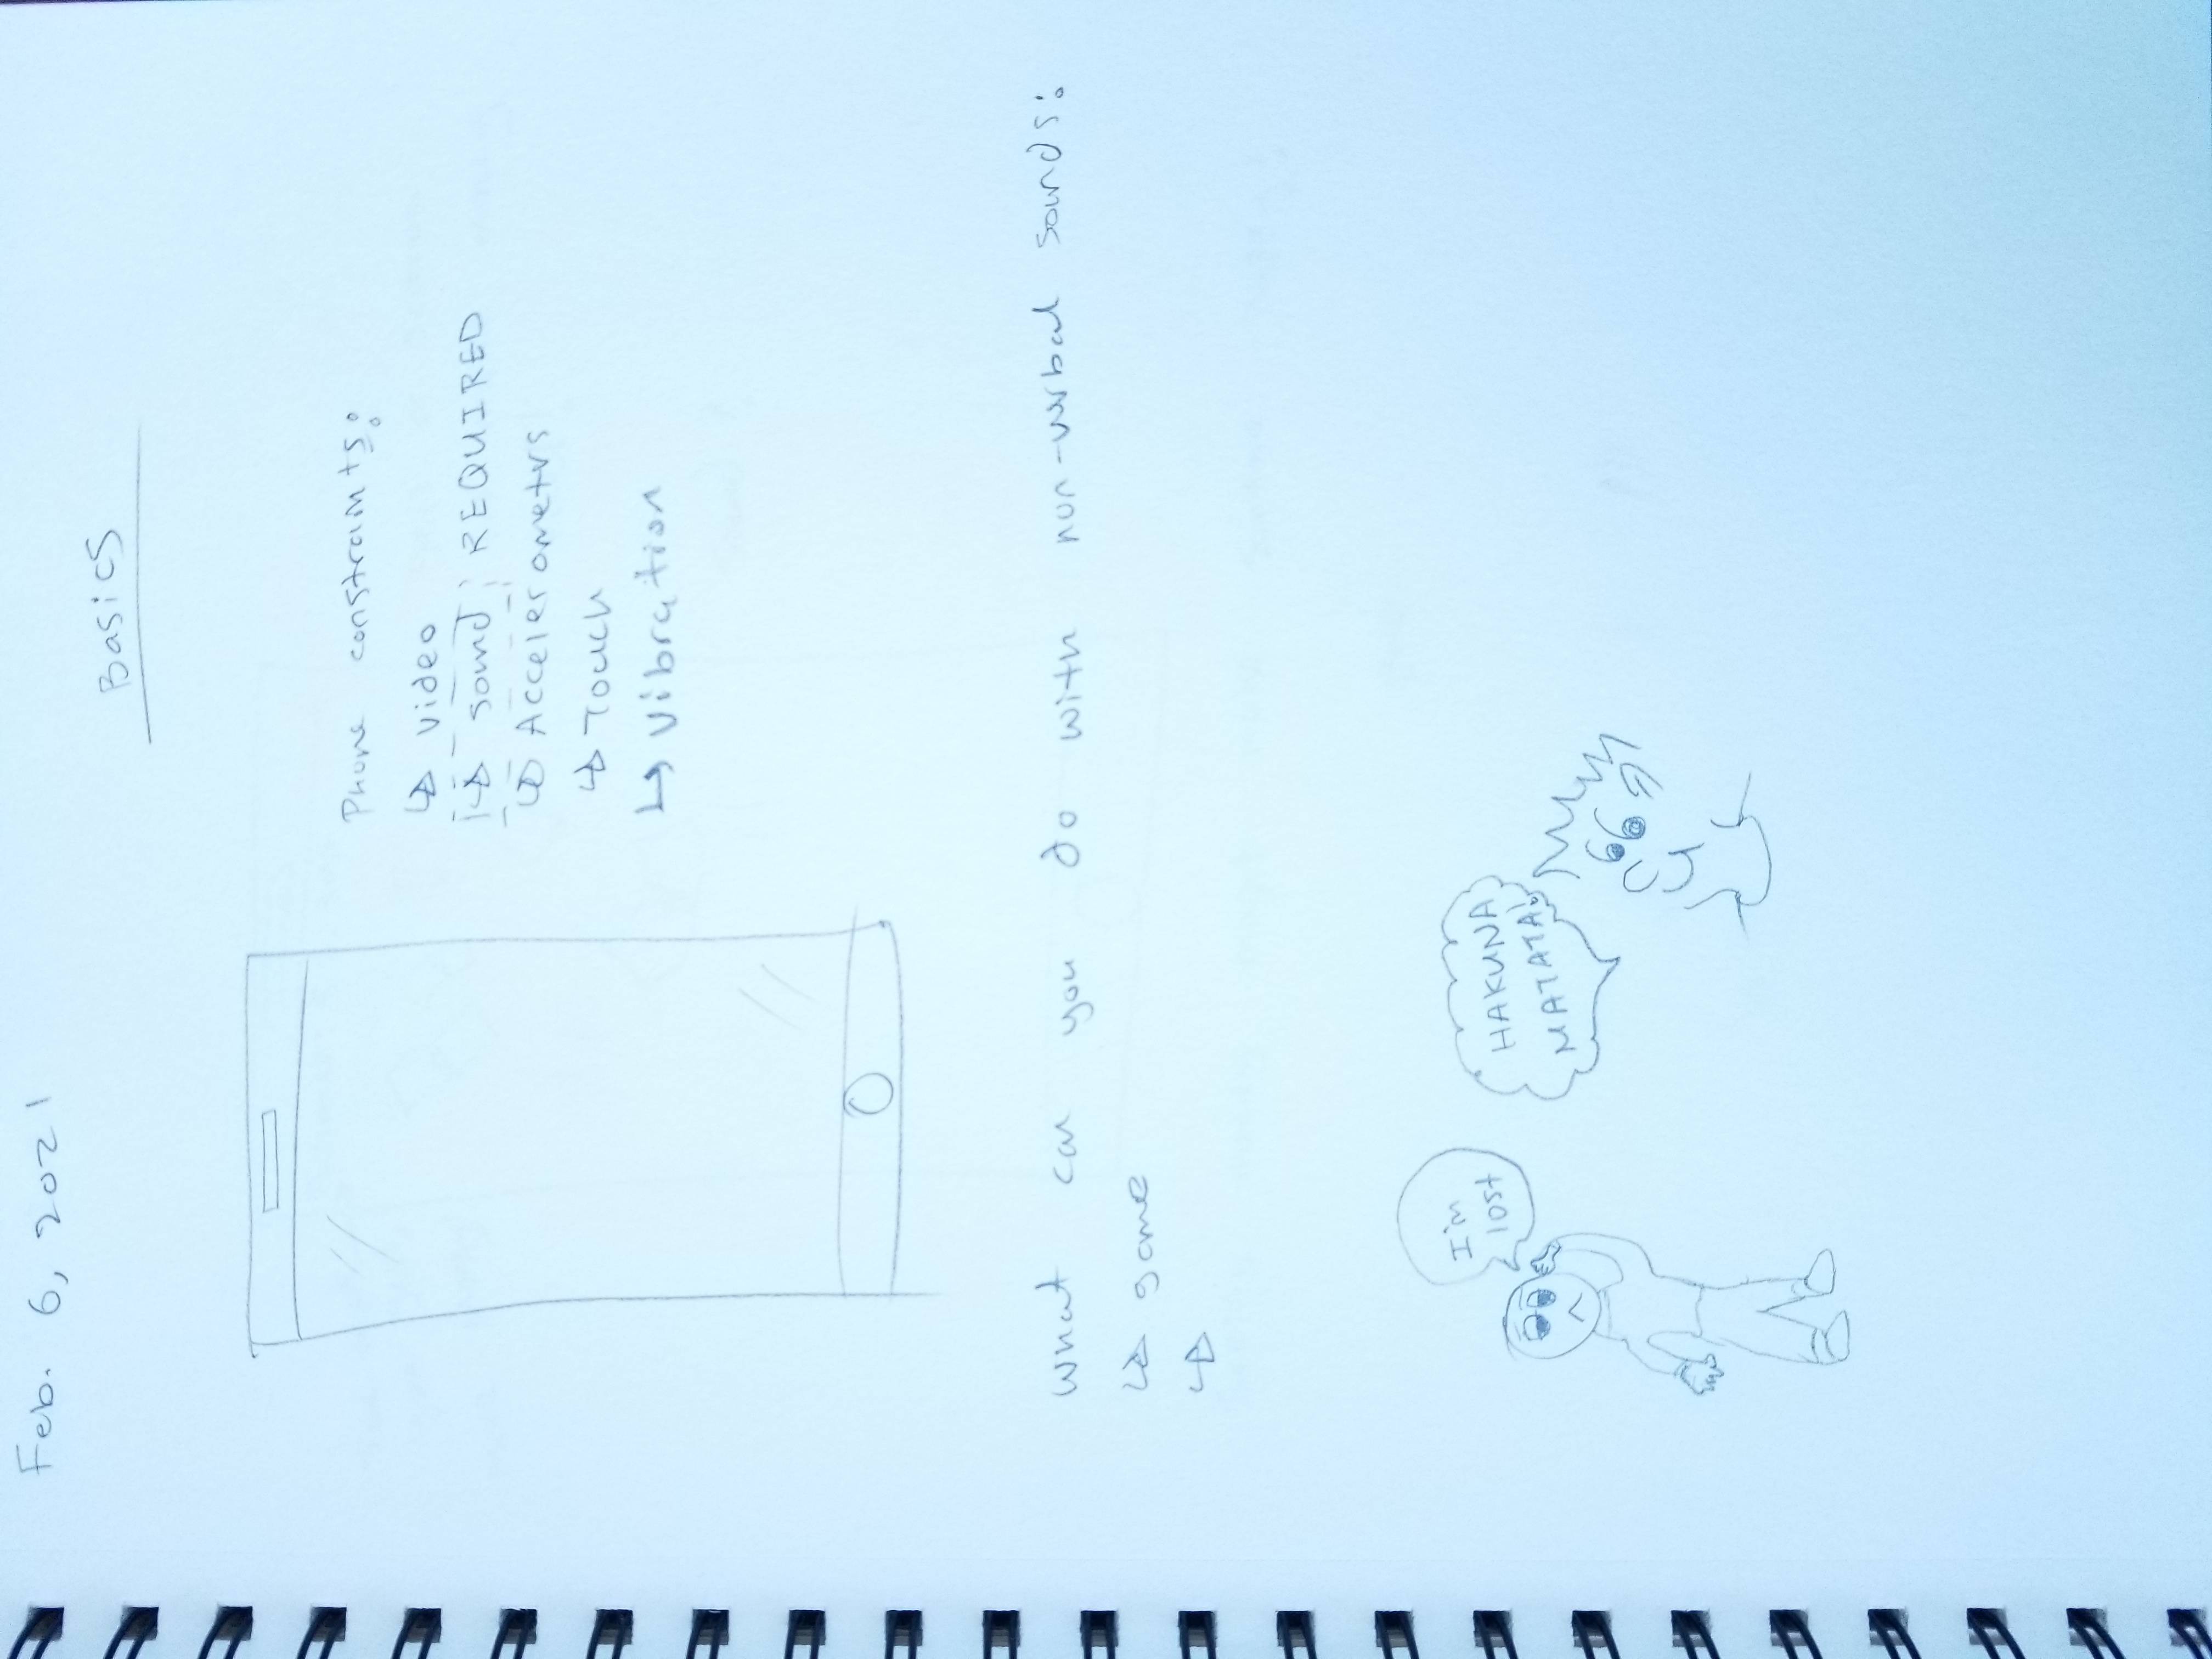 Feb. 6, 2021
Basics
Phone constraints:
↳ video
↳ sound REQUIRED
↳ Accelerometrs
↳ Touch
↳ Vibration
what can you do with non-verbal sounds:
↳ game
↳
I'm
lost
HAKUNA
MATATA!